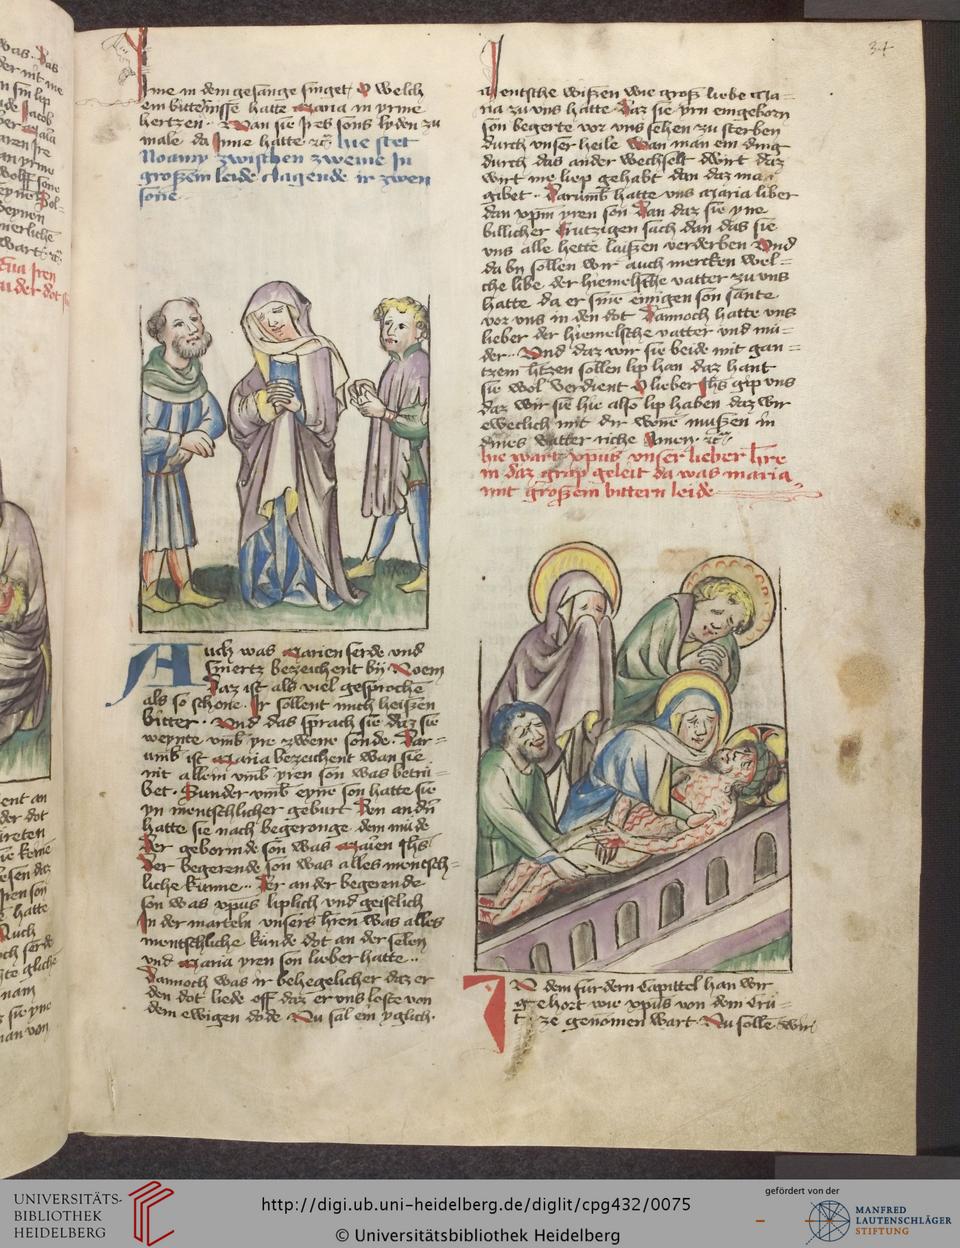 34
ym̄e in dem gesange singet O welch
ein bitterniſſe hatte Maria in yrme
hertzen · Wan sie Jres sons lyden zu
male da Jnne hatte ·
hie stet
Noamy zwischen zweine in
großem leide clagende ir zwen
sone ·
Auch was Marien serde vnd
smertz bezeichent bij Noem
Daz ist als viel gesproche
als so schone · Jr sollent mich heißen
bitter · Vnd das sprach sie daz sie
weynte vmb yre zwene sonde · Dar=
umb ist Maria bezeichent wan sie
nit allein vmb yren son was betru=
bet · Sunder vmb eyne son hatte sie
yn mentschlicher geburt Den andn̄
hatte sie nach begeronge dem müde
Der geborinde son was Marien Jhs
Der begerende son was alles mentsch=
liche kunne ·· Der ander begerende
son was xpus liplich vnd geistlich
Jn der marteln vnsers hren was alles
mentschliche kunde dot an der selen
vnd Maria yren son lieber hatte ··
Dannoch was ir behegelicher daz er
den dot liede off daz er vns loste von
dem ewigen dode Nu sal ein yglich ·
mentsche wißen wie groß liebe Ma=
ria zu vns hatte Daz sie yrn eingeborn
son begerte vor vns sehen zu sterben
durch vnser heile Wan man ein ding
durch das ander wechselt dwirt daz
wirt me liep gehabt dan daz man
gibet · Darumb hatte vns Maria liber
dan xpm yren son Dan daz sie yne
billicher Crutzigen sach dan das sie
vns alle hette laißen verderben Vnd
da by sollen wir auch mercken wel=
che libe der hiemelsche vatter zu vns
hatte da er sine einigen son sante
vor vns in den dot Dannoch hatte vns
lieber der hiemelsche vatter vnd mu=
der ·· Vnd daz wir sie beide mit gan=
tzem htzen sollen lip han daz hant
sie wol verdient O lieber Jhs gip vns
daz wir sie hie also lip haben daz wir
eweclich mit dir wone mußen in
dines vatter riche Amen ·
hie wart xpus vnser lieber hre
in daz grap geleit da was maria
mit großem bittern leide
Jn dem furdern Capittel han wir
gehort wie xpus von dem Cru=
tze genomen wart · Nu solle wir
UNIVERSITÄTS-
BIBLIOTHEK
HEIDELBERG
http://digi.ub.uni-heidelberg.de/diglit/cpg432/0075
© Universitätsbibliothek Heidelberg
gefördert von der
MANFRED
LAUTENSCHLÄGER
STIFTUNG